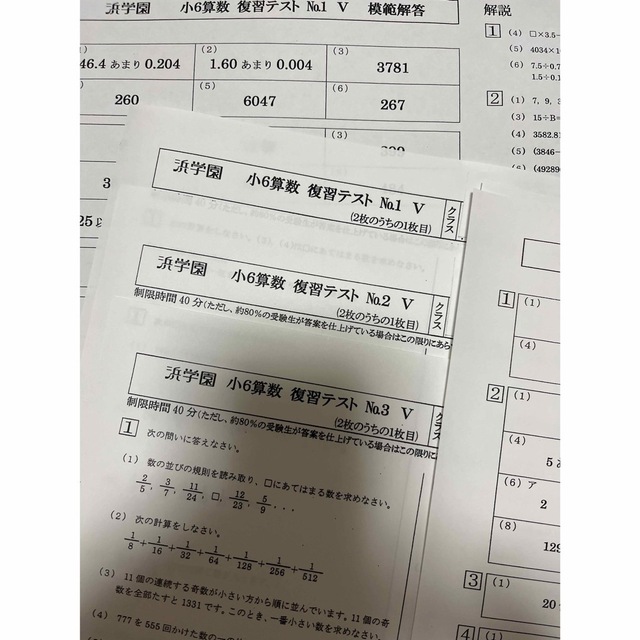 浜学園 小6算数 復習テスト №1 V 模範解答
(1) (2) (3)
46.4 あまり 0.204 1.60 あまり 0.004 3781
(5) (6)
260 6047 267
(3)
解説
1 (4) □×3.5-
(5) 4034×1
(6) 7.5÷0.7
1.5÷0.1
2 (1) 7, 9, 3
(3) 15÷B=
(4) 3582.81
(5) (3846-
(6) (49289
浜学園 小6算数 復習テスト №1 V
(2枚のうちの1枚目)
クラス
浜学園 小6算数 復習テスト №2 V
(2枚のうちの1枚目)
クラス
制限時間 40 分(ただし、約80%の受験生が答案を仕上げている場合はこの限りにあら
浜学園 小6算数 復習テスト №3 V
(2枚のうちの1枚目)
クラス
制限時間 40 分(ただし、約80%の受験生が答案を仕上げている場合はこの限りに
1 次の問いに答えなさい。
(1) 数の並びの規則を読み取り、□にあてはまる数を求めなさい。
2/5, 3/7, 11/24, □, 12/23, 5/9, ...
(2) 次の計算をしなさい。
1/8+1/16+1/32+1/64+1/128+1/256+1/512
(3) 11個の連続する奇数が小さい方から順に並んでいます。11個の奇
数を全部たすと1331です。このとき、一番小さい数を求めなさい。
(4) 777を555回かけた数の一の
1 (1)
(4)
2 (1)
(4)
5
(6) ア
2
(8)
129
3 (1)
20
4 (1)